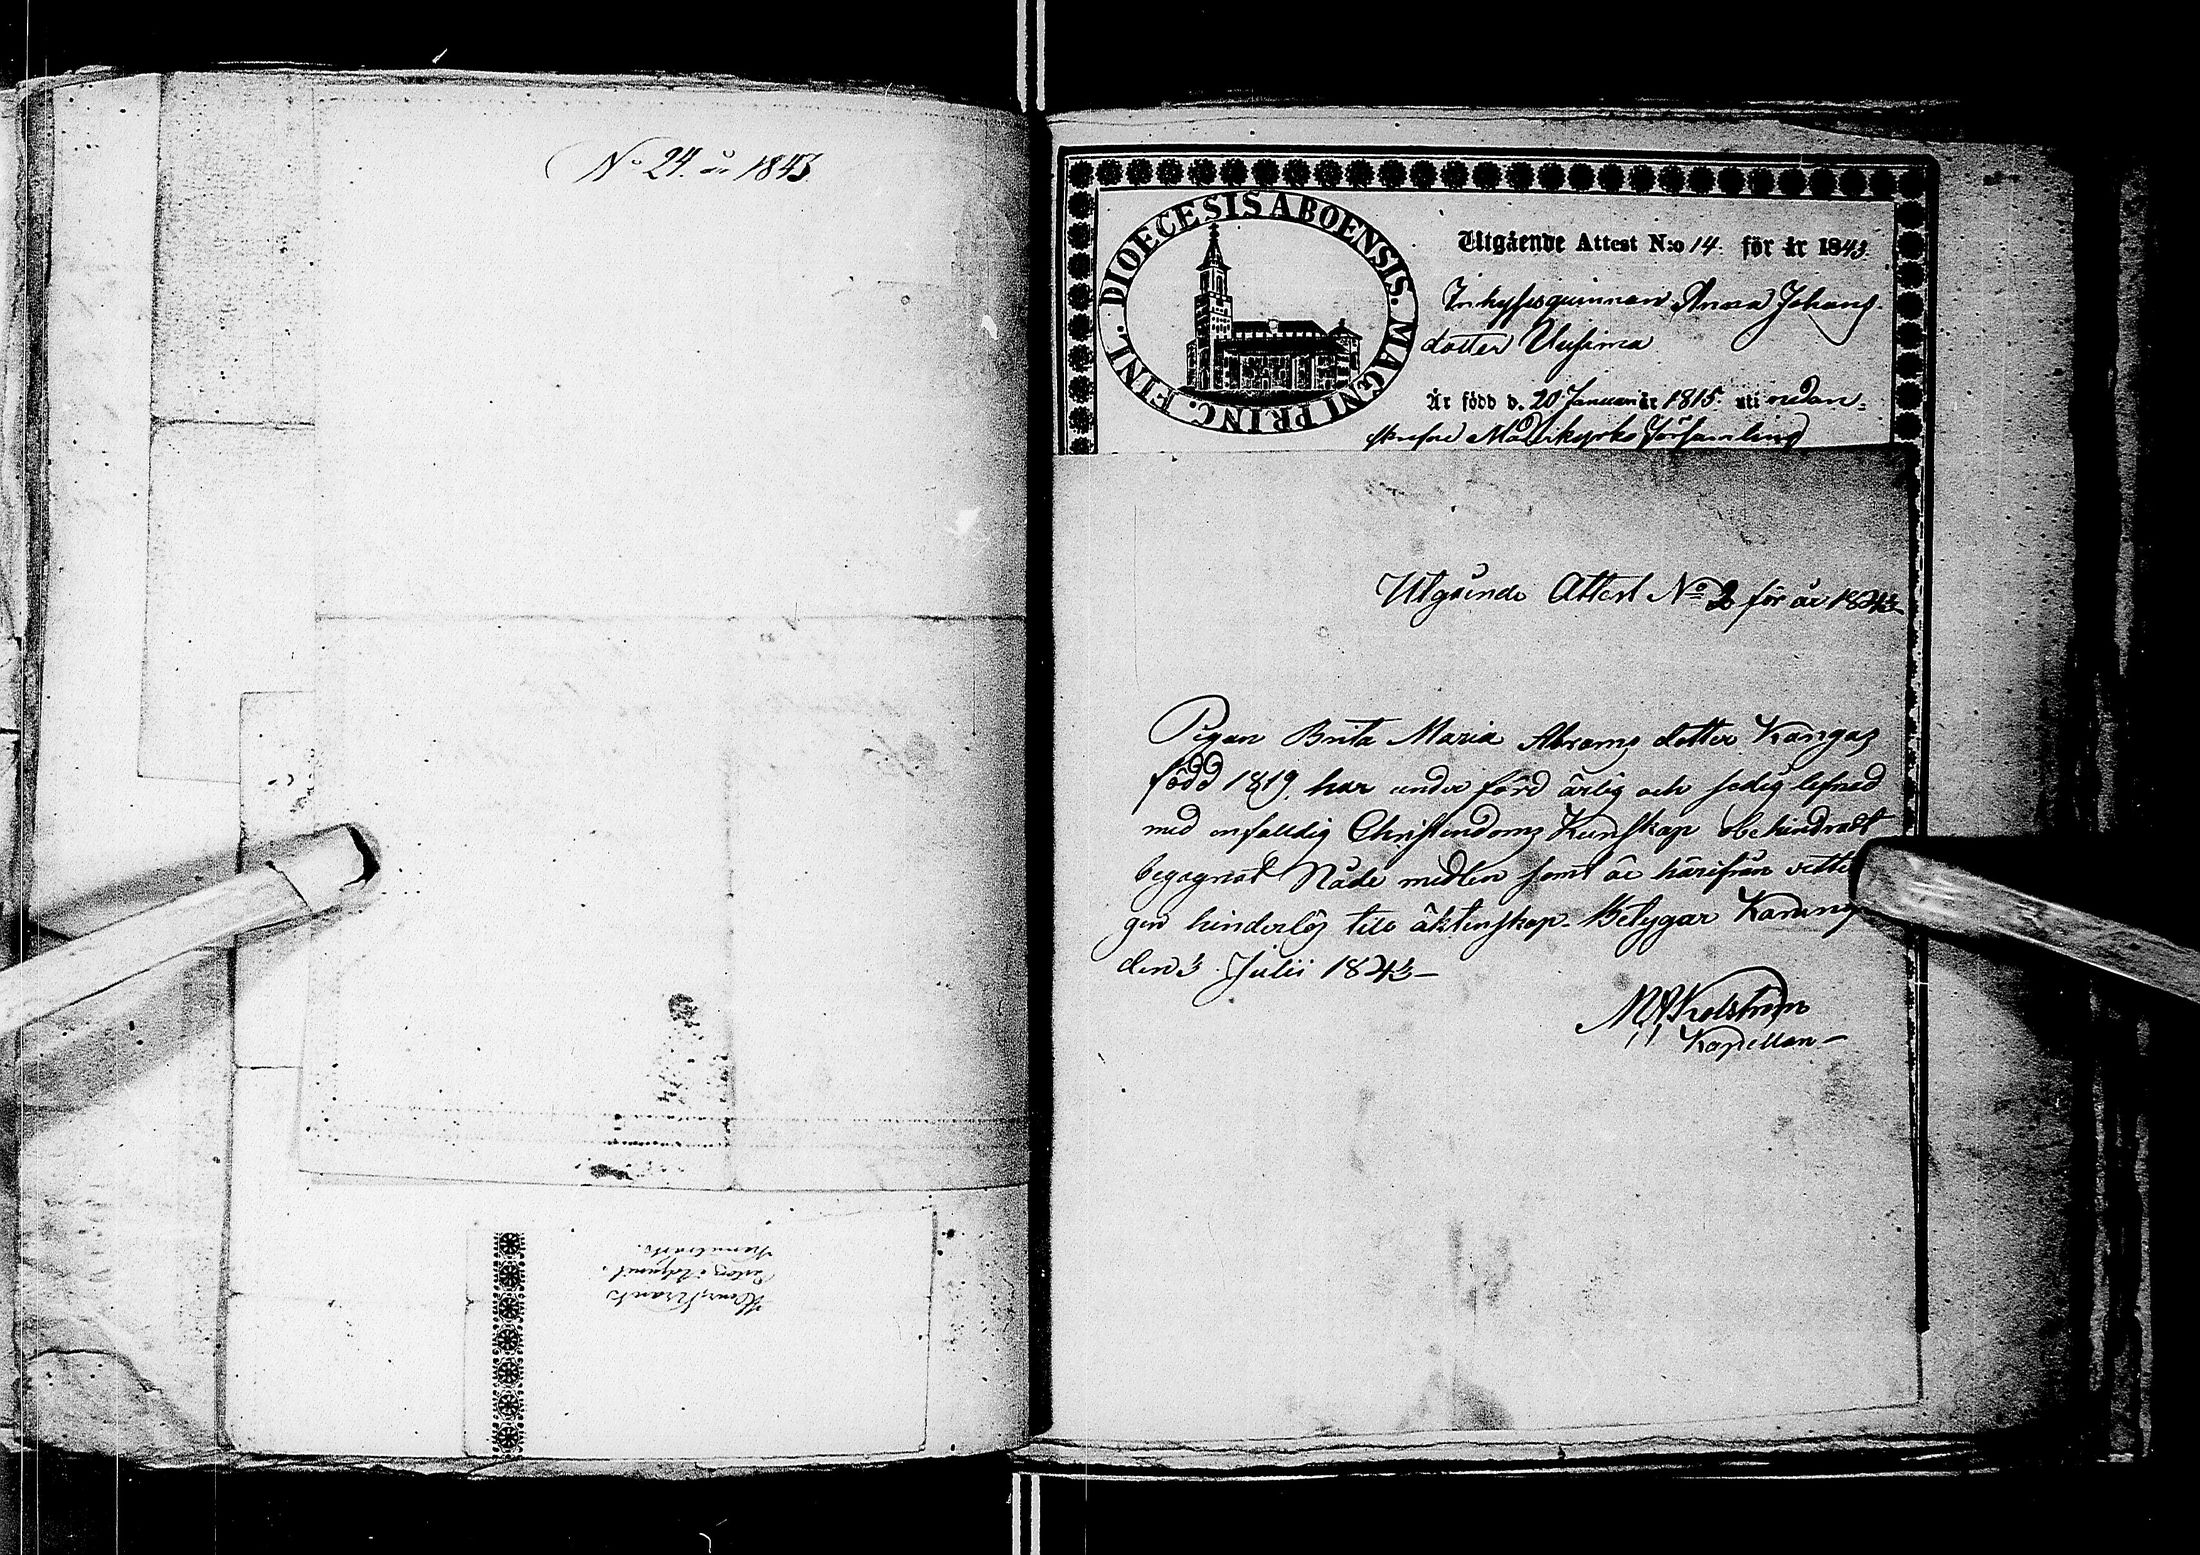 No 24. år 1843
DIOECESIS ABOENSIS. MAGNI PRINC. FINL.
Utgående Attest N:o 14. för år 1843.
Inhyses quinnan Anna Johans-
dotter Uusima
Är född d. 20 Januari år 1815. uti nedan-
skrefne Moderkyrko församling
Utgående Attest No 2 för år 1843
Pigan Brita Maria Abrams dotter Kangas
född 1819. har under förd ärlig och sedig lefnad
med enfalldig Christendoms Kunskap obehindradt
begagnat Nåde medlen samt är härifrån vette
gen hinderlös till äktenskap. Betygar
den 3 Julii 1843 –
Kapellan –